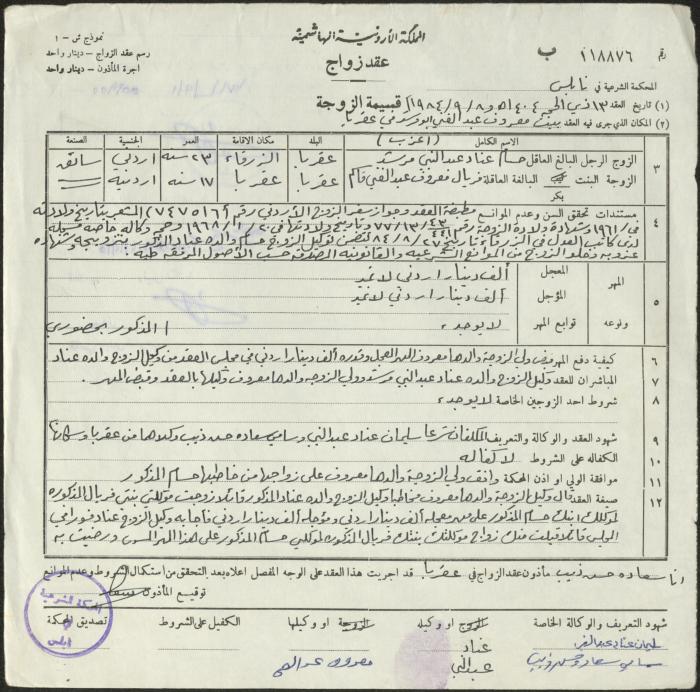 المملكة الأردنية الهاشمية
نموذج ش - ١
عقد زواج
رقم ١١٨٨٧٦ ب
رسم عقد الزواج - دينار واحد
اجرة المأذون - دينار واحد
المحكمة الشرعية في نابلس
(١) تاريخ العقد ١٣ ذي الحجة ١٤٠٤ه ٨/٩/١٩٨٤م قسيمة الزوجة
(٢) المكان الذي جرى فيه العقد بيت معروف عبد الغني في عقربا
الاسم الكامل (اعزب) البلد مكان الاقامة العمر الجنسية الصنعة
٣ الزوج الرجل البالغ العاقل حسام عناد عبد النبي مرشد عقربا الزرقاء ٢٣ سنة اردني سائق
الزوجة البنت البالغة العاقلة فريال معروف عبد الغني عقربا عقربا ١٧ سنة اردنية
بكر
٤ مستندات تحقق السن وعدم الموانع مضبطة العقد وجواز سفر الزوج الأردني رقم
في ١٩٦١ وشهادة ولادة الزوجة رقم
لدى كاتب العدل في الزرقاء تاريخ ٢٧/٨/٨٤ تتضمن توكيل الزوج حسام والده عناد المذكور بتزويجه
وخلو الزوج من الموانع الشرعية والقانونية حسب الأصول المرفقة طيه
٥ المهر المعجل ألف دينار اردني لا غير
المؤجل ألف دينار اردني لا غير
ونوعه توابع المهر لا يوجد المذكور بحضوري
٦ كيفية دفع المهر قبض ولي الزوجة والدها معروف المهر المعجل وقدره ألف دينار اردني في مجلس العقد من وكيل الزوج والده عناد
٧ المباشران للعقد وكيل الزوج والده عناد عبد النبي مرشد وولي الزوجة والدها معروف وكيلها بالعقد وقبض المهر
٨ شروط احد الزوجين الخاصة لا يوجد
٩ شهود العقد والوكالة والتعريف المكلفان شرعا سليمان عناد عبد النبي وسامي سعاده حسن ذيب وكلاهما من عقربا وسكانها
١٠ الكفالة على الشروط لا كفاله
١١ موافقة الولي او اذن المحكمة وافق ولي الزوجة والدها معروف على زواجها من خاطبها حسام المذكور
١٢ صيغة العقد قال وكيل الزوجة والدها معروف مخاطبا وكيل الزوج والده عناد المذكور قائلا زوجت موكلتي بنتي فريال المذكوره
لموكلك ابنك حسام المذكور على مهر معجله ألف دينار اردني ومؤجله ألف دينار اردني فأجابه وكيل الزوج عناد فورا في
المجلس قائلا قبلت منك زواج موكلتك بنتك فريال المذكوره لموكلي حسام المذكور على هذا المهر المسمى ورضيت به
انا سعاده حسن ذيب مأذون عقد الزواج في عقربا قد اجريت هذا العقد على الوجه المفصل اعلاه بعد التحقق من استكمال الشروط وعدم الموانع
توقيع المأذون
شهود التعريف والوكالة الخاصة الزوج او وكيله الزوجة او وكيلها الكفيل على الشروط تصديق المحكمة
سليمان عناد عبد النبي
عناد
عبد النبي
معروف عبد الغني
المحكمة الشرعية
نابلس